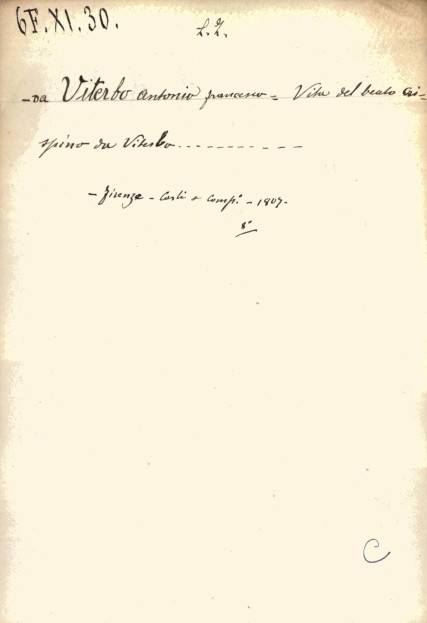 6F.XI.30.
L.I.
- Da Viterbo Antonio francesco = Vita del beato Cri=
spino da Viterbo - - - - - - - - - -
- Firenze - Carli e Comp.° - 1807.
8°
C